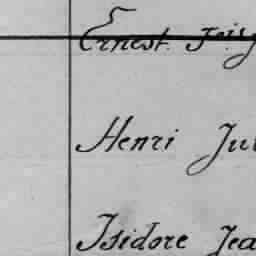 Ernest
Henri Ju
Isidore Jea